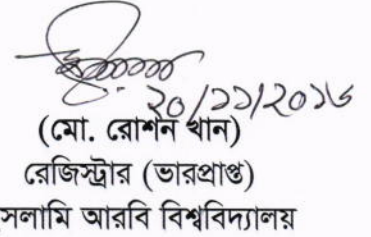 ২০/১১/২০১৬
(মো. রোশন খান)
রেজিস্ট্রার (ভারপ্রাপ্ত)
সলামি আরবি বিশ্ববিদ্যালয়